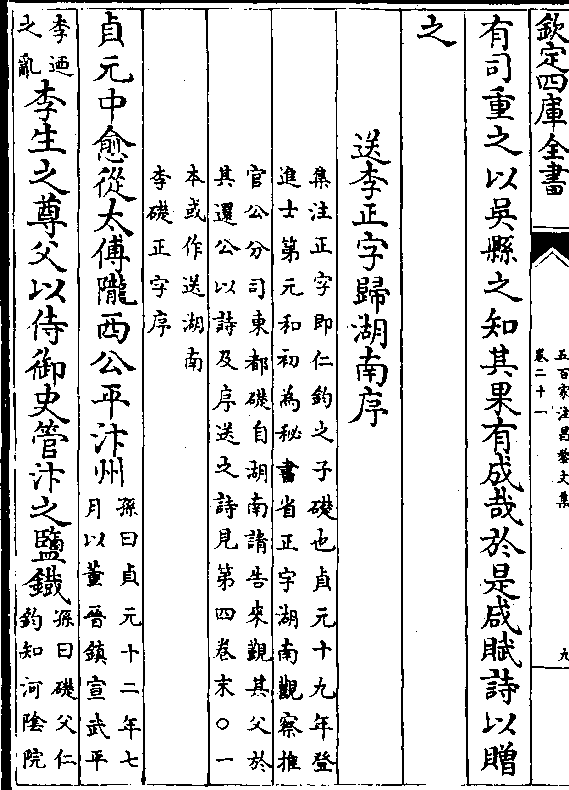 欽定四庫全書
五百家注昌黎文集
卷二十一
九
有司重之以吳縣之知其果有成哉於是咸賦詩以贈
之
送李正字歸湖南序
集注正字即仁鈞之子礎也貞元十九年登
進士第元和初為秘書省正字湖南觀察推
官公分司東都礎自湖南請告來觀其父於
其還公以詩及序送之詩見第四卷末○一
本或作送湖南
李礎正字序
貞元中愈從太傅隴西公平汴州
孫曰貞元十二年七
月以董晉鎮宣武平
李迺
之亂
李生之尊父以侍御史管汴之鹽鐵
孫曰礎父仁
鈞知河陰院